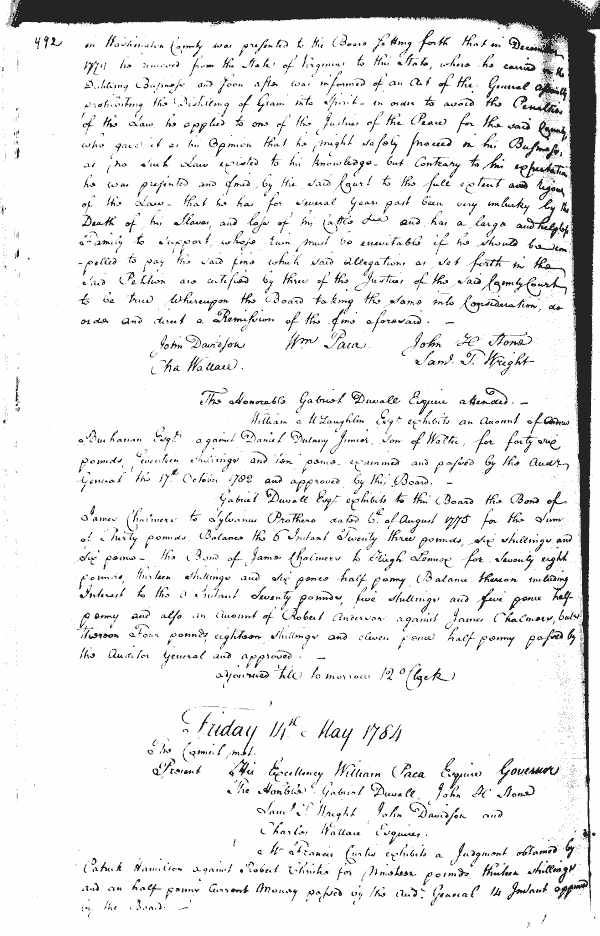 492
in Washington County was presented to the Board setting forth that in December
1779 he removed from the State of Virginia to this State, where he carried on the
Distilling Business and soon after was informed of an Act of the General Assembly
prohibiting the Distilling of Grain into Spirit - in order to avoid the Penalties
of the Law he applied to one of the Justices of the Peace for the said County
who gave it as his Opinion that he might safely proceed in his Business,
as no such Law existed to his knowledge - but Contrary to his expectation
he was presented and fined by the said Court to the full extent and rigour
of the Law - that he has for Several Years past been very unlucky by the
Death of his Slaves, and loss of his Cattle &ca and has a large and helpless
Family to Support, whose ruin must be inevitable if he should be com
-pelled to pay the said fine which said allegations as set forth in the
said Petition are certified by three of the Justices of the said County Court
to be true Whereupon the Board taking the same into Consideration, do
order and direct a Remission of the fine aforesaid. -
John Davidson Wm Paca John H Stone
Cha Wallace. Saml. T. Wright
The Honorable Gabriel Duvall Esquire attended. -
William McLaughlin, Esqr. exhibits an Account of
Buchanan Esqr. against Daniel Dulany Junior, Son of Walter, for forty six
pounds, Seventeen Shillings and ten pence - examined and passed by the Audr.
General the 17th October 1782 and approved by this Board. -
Gabriel Duvall Esqr. exhibits to this Board the Bond of
James Chalmers to Sylvanus Prothero dated 6th of August 1775 for the Sum
of Thirty pounds Balance the 6 Instant Twenty three pounds, six shillings and
six pence - the Bond of James Chalmers to Hugh Lennox for Seventy eight
pounds, thirteen Shillings and six pence half penny Balance thereon including
Interest to the 6 Instant Seventy pounds, five shillings and five pence half
penny and also an Account of Robert Anderson against James Chalmers, bale.
thereon Four pounds eighteen Shillings and eleven pence half penny passed by
the Auditor General and approved. -
adjourned till to morrow 12 o'Clock
Friday 14th May 1784
The Council met.
Present His Excellency William Paca Esquire Governor
The Honble. Gabriel Duvall, John H Stone
Saml. T. Wright John Davidson and
Charles Wallace Esquires.
Mr. Francis Curtis exhibits a Judgment obtained by
Patrick Hamilton against Robert Christie for nineteen pounds thirteen shillings
and an half penny Current Money passed by the Aud: General 14 Instant approved
by the Board. -